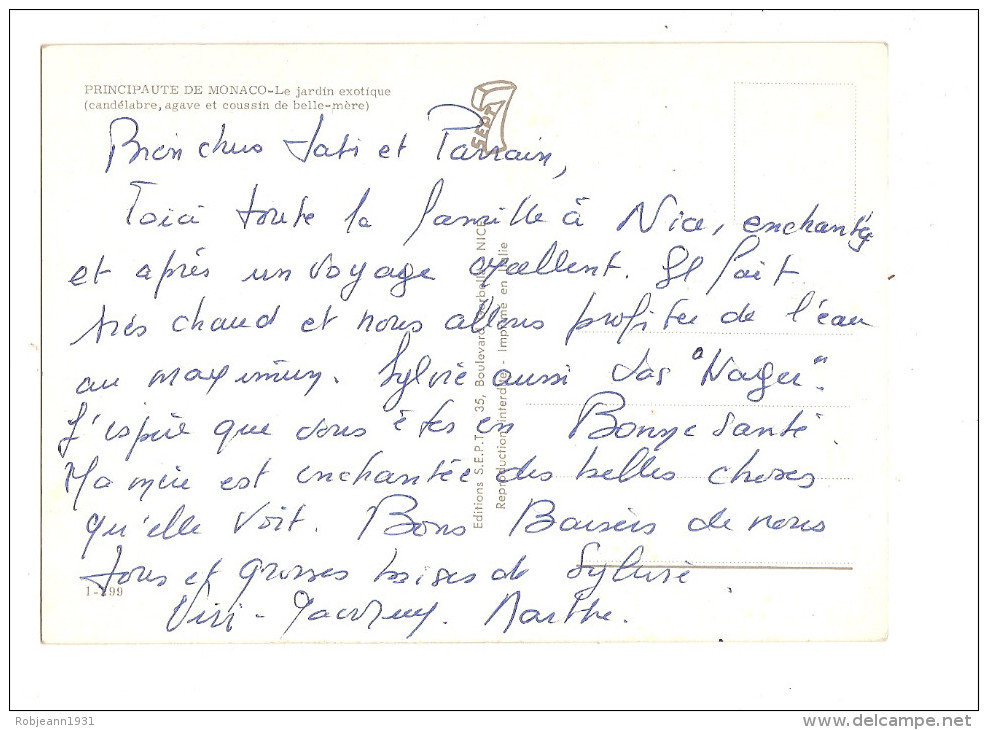 PRINCIPAUTE DE MONACO-Le jardin exotique
(candélabre, agave et coussin de belle-mère)
SEPT
Bien chers Tati et Parrain,
Voici toute la famille à Nice, enchantée
et après un voyage excellent. Il fait
très chaud et nous allons profiter de l'eau
au maximum. Sylvie aussi va "Nager".
J'espère que vous êtes en Bonne Santé.
Ma mère est enchantée des belles choses
qu'elle voit. Bons Baisers de nous
tous et grosses bises de Sylvie
Marthe.
1-299
Editions S.E.P.T. 35, Boulevard NICE
Reproduction interdite - Imprimé en Italie
Robjeann1931
www.delcampe.net